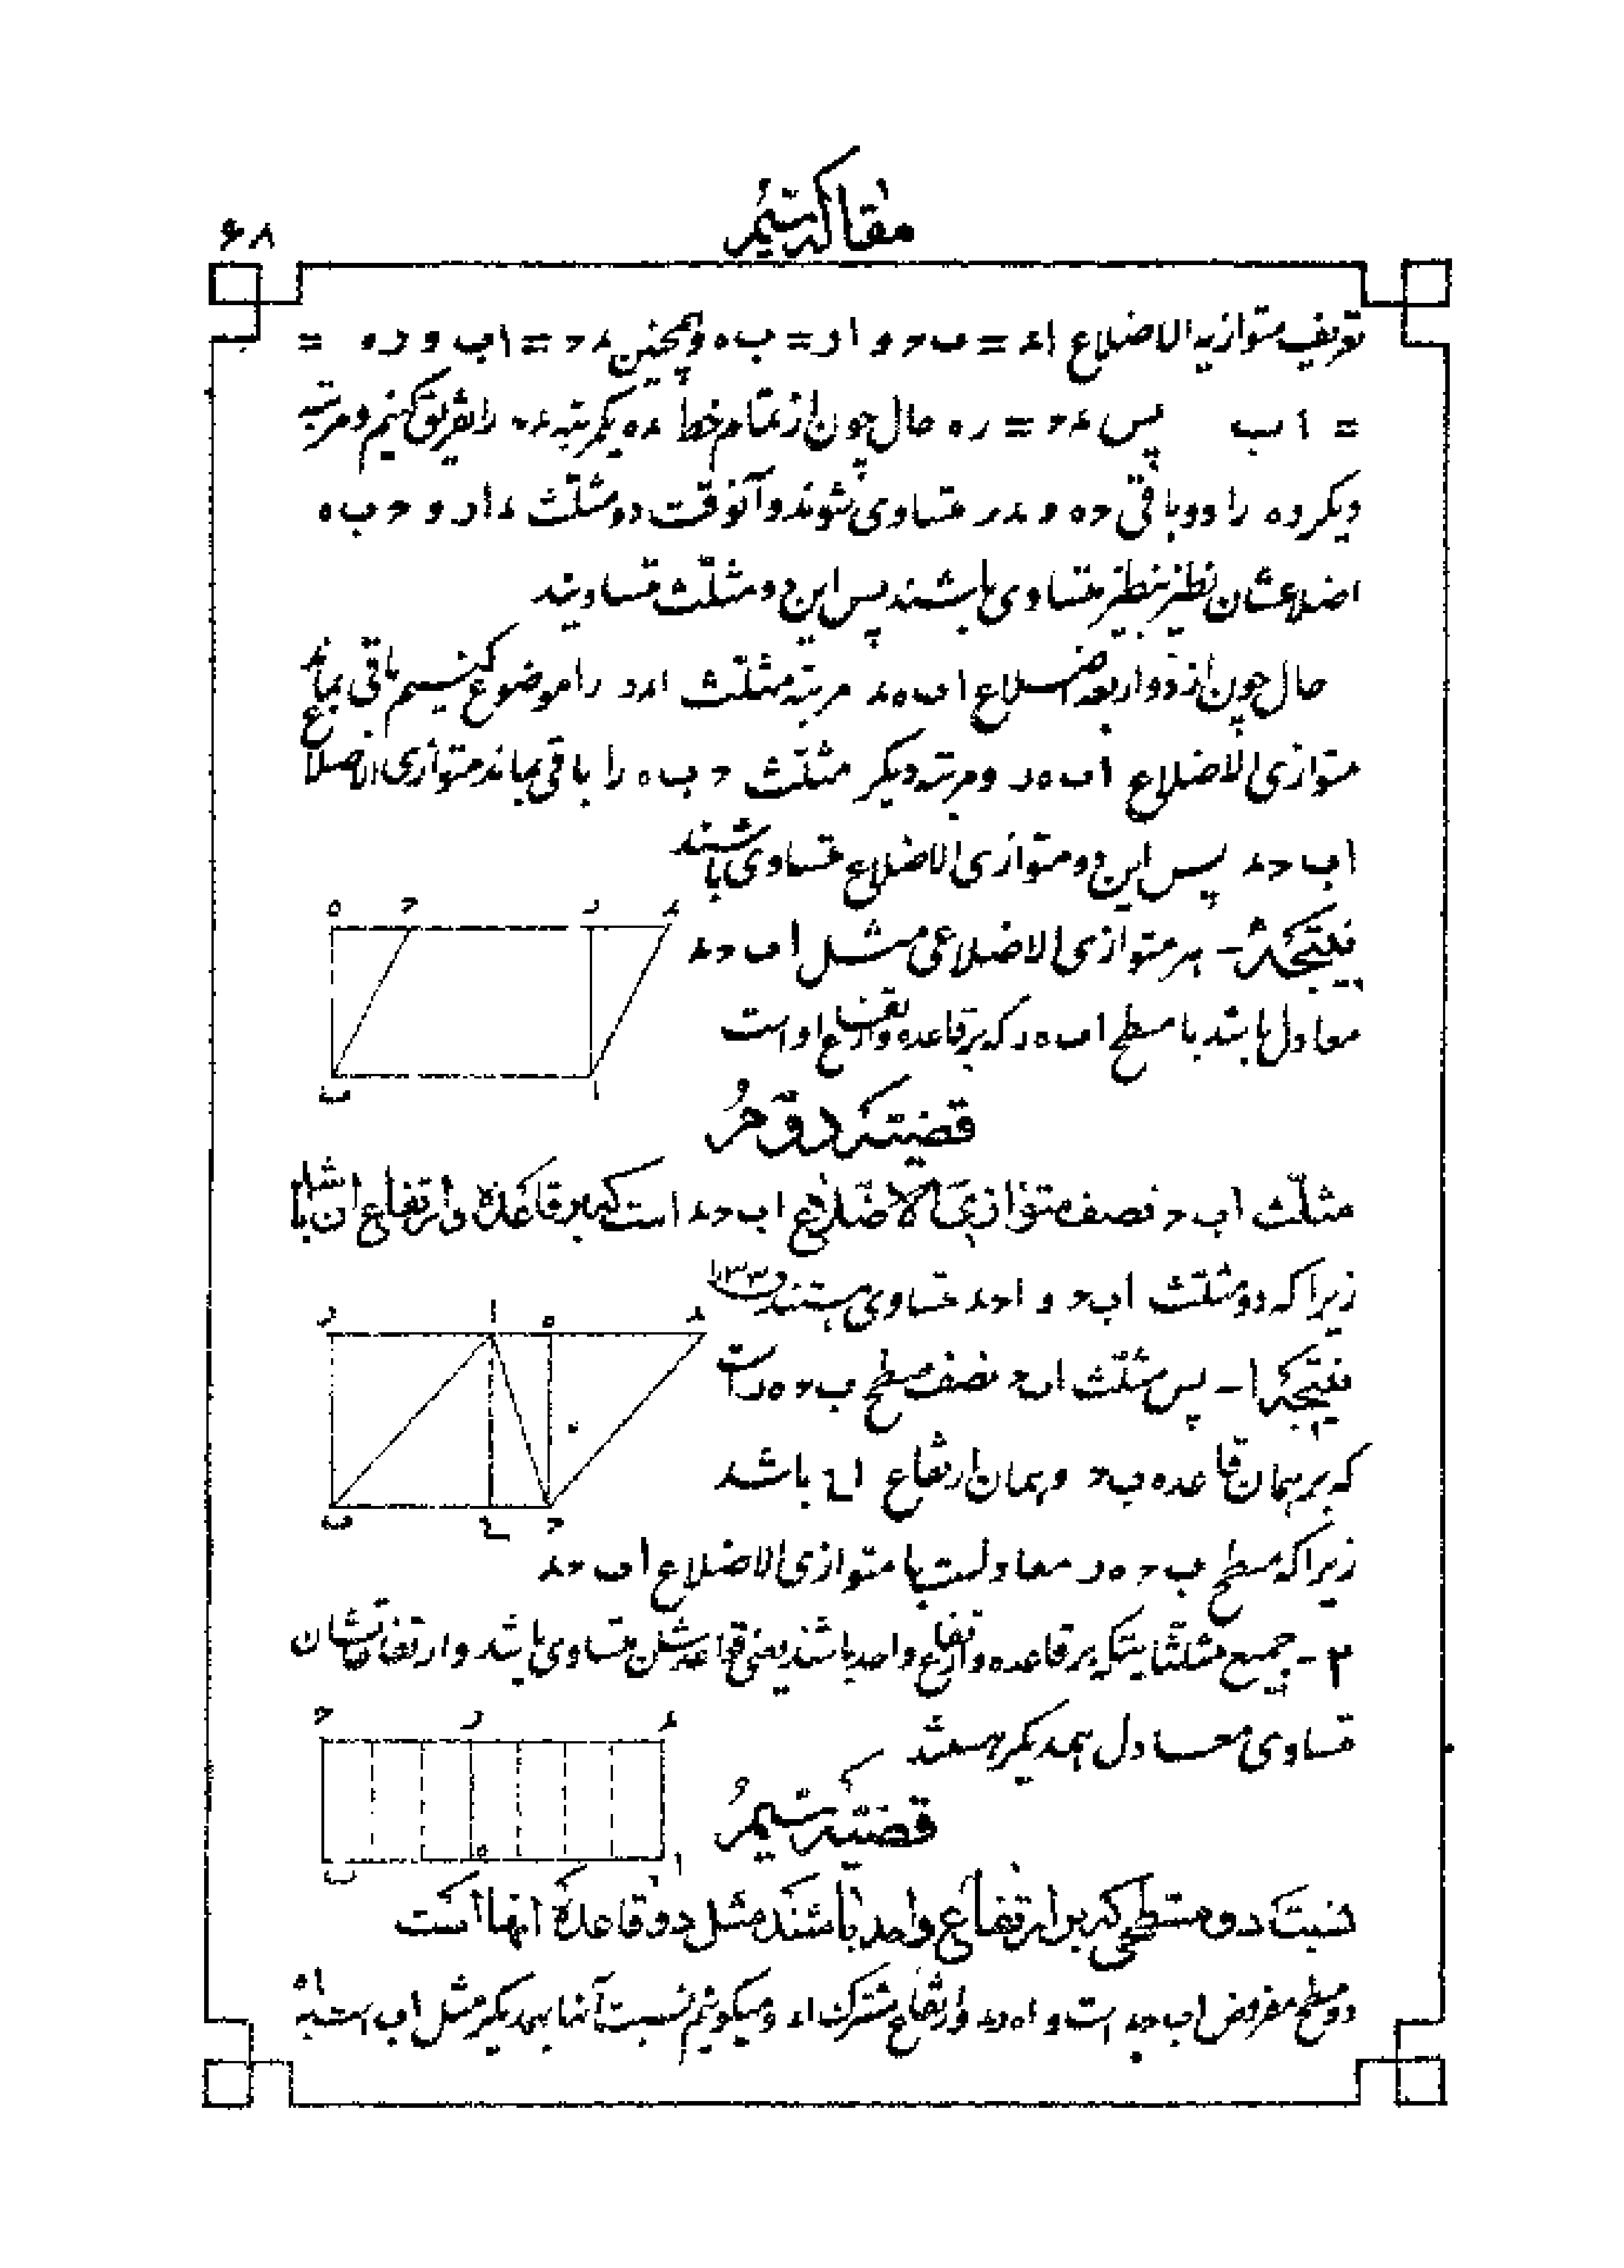 مقاله سیم
۶۸
تعریف متوازیه الاضلاع اء = ب‍ح و ار = ب‍ه و همچنین ءح = اب و ره =
= اب پس ءح = ره حال چون از تمام خط ءه یکمرتبه ءح را تفریق کنیم و مرتبه
دیگر ره را دو باقی حه و ءر متساوی شوند و آنوقت دو مثلّث ءار و ح‍ب‍ه
اضلاعشان نظیر بنظیر متساوی باشند پس این دو مثلّث متساویند
حال چون از ذو اربعه اضلاع اب‍هء مرتبه مثلّث اءر را موضوع کنیم باقی بماند
متوازی الاضلاع اب‍هر و مرتبه دیگر مثلّث ح‍ب‍ه را باقی بماند متوازی الاضلاع
اب‍حء پس این دو متوازی الاضلاع متساوی باشند
نتیجه - هر متوازی الاضلاعی مثل اب‍حء
معادل باشد با سطح اب‍هر که بر قاعده و ارتفاع او است
ه ح ر ء
ب ا
قضیّه دوّم
مثلّث اب‍ح نصف متوازی الاضلاع اب‍حء است که بر قاعده و ارتفاع ان باشد
زیرا که دو مثلّث اب‍ح و احء متساوی هستند
ر ا ه ء
نتیجه ۱ - پس مثلّث اب‍ح نصف سطح ب‍حهر است
که بر همان قاعده ب‍ح و همان ارتفاع اع باشد
ب ع ح
زیرا که سطح ب‍حهر معادلست با متوازی الاضلاع اب‍حء
۲ - جمیع مثلّثاتیکه بر قاعده و ارتفاع واحد باشند یعنی قواعدشان متساوی باشد و ارتفاعاتشان
متساوی معادل همدیگر هستند
ح ر ء
قضیّه سیم
ب ه ا
نسبت دو مسطحی که بر ارتفاع واحد باشند مثل دو قاعده انها است
دو سطح مفروض اب‍حء است و اهرء و ارتفاع مشترک اء و میگوئیم نسبت آنها بهمدیگر مثل اب است به اه